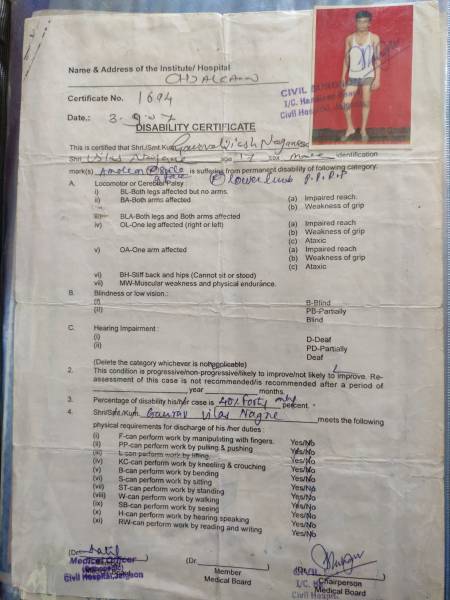 Name & Address of the Institute/ Hospital
CHJALGAON
Certificate No. 1694
CIVIL
I/C. Handicap Board
Civil Hospital, Jalgaon
Date.: 3-9-07
DISABILITY CERTIFICATE
This is certified that Shri./Smt Kum Gaurav Vilas Nagane
Shri Vilas Nagane age 17 sex male identification
mark(s) A mole on face is suffering from permanent disability of following category.
A. Locomotor or Cerebral Palsy : lower limb P.P.R.P
i) BL-Both legs affected but no arms.
ii) BA-Both arms affected (a) Impaired reach.
(b) Weakness of grip
iii) BLA-Both legs and Both arms affected
iv) OL-One leg affected (right or left) (a) Impaired reach
(b) Weakness of grip
(c) Ataxic
v) OA-One arm affected (a) Impaired reach
(b) Weakness of grip
(c) Ataxic
vi) BH-Stiff back and hips (Cannot sit or stood)
vii) MW-Muscular weakness and physical endurance.
B. Blindness or low vision :
(i) B-Blind
(ii) PB-Partially
Blind
C. Hearing Impairment :
(i) D-Deaf
(ii) PD-Partially
Deaf
(Delete the category whichever is not applicable)
2. This condition is progressive/non-progressive/likely to improve/not likely to improve. Re-
assessment of this case is not recommended/is recommended after a period of
year months.
3. Percentage of disability his/her case is 40% Forty only percent.
4. Shri/Smt./Kum. Gaurav Vilas Nagne meets the following
physical requirements for discharge of his /her duties :
(i) F-can perform work by manipulating with fingers. Yes/No
(ii) PP-can perform work by pulling & pushing Yes/No
(iii) L-can perform work by lifting Yes/No
(iv) KC-can perform work by kneeling & crouching Yes/No
(v) B-can perform work by bending Yes/No
(vi) S-can perform work by sitting Yes/No
(vii) ST-can perform work by standing Yes/No
(viii) W-can perform work by walking Yes/No
(ix) SB-can perform work by seeing Yes/No
(x) H-can perform work by hearing speaking Yes/No
(xi) RW-can perform work by reading and writing Yes/No
(Dr. (Dr. (Dr.
Medical Officer Member Chairperson
Medical Board Medical Board
Civil Hospital, Jalgaon I/C. Civil Hospital